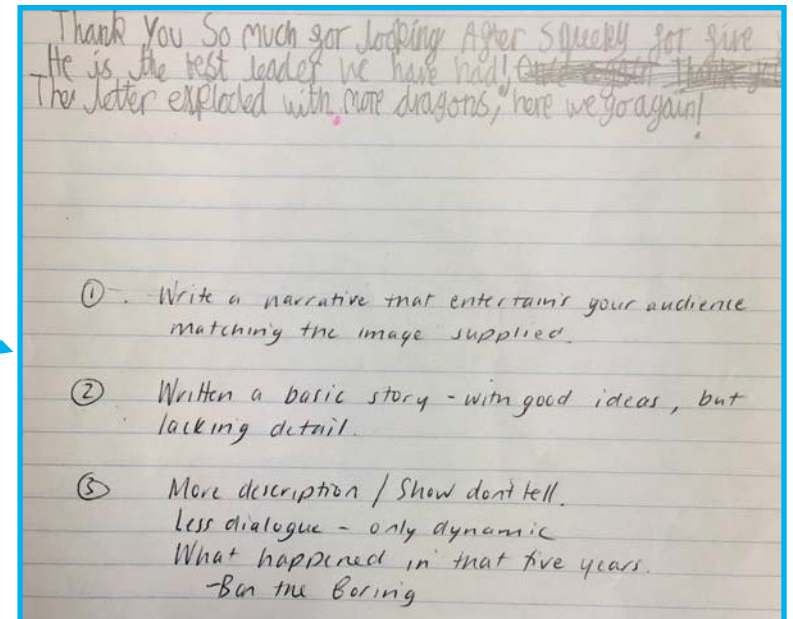 Thank You So much for looking After Squeeky for five y
He is the best leader we have had!
The letter exploded with more dragons, here we go again!
① . Write a narrative that entertains your audience
matching the image supplied.
② Written a basic story - with good ideas, but
lacking detail.
③ More description / Show dont tell.
Less dialogue - only dynamic
What happened in that five years.
- Ban the Boring